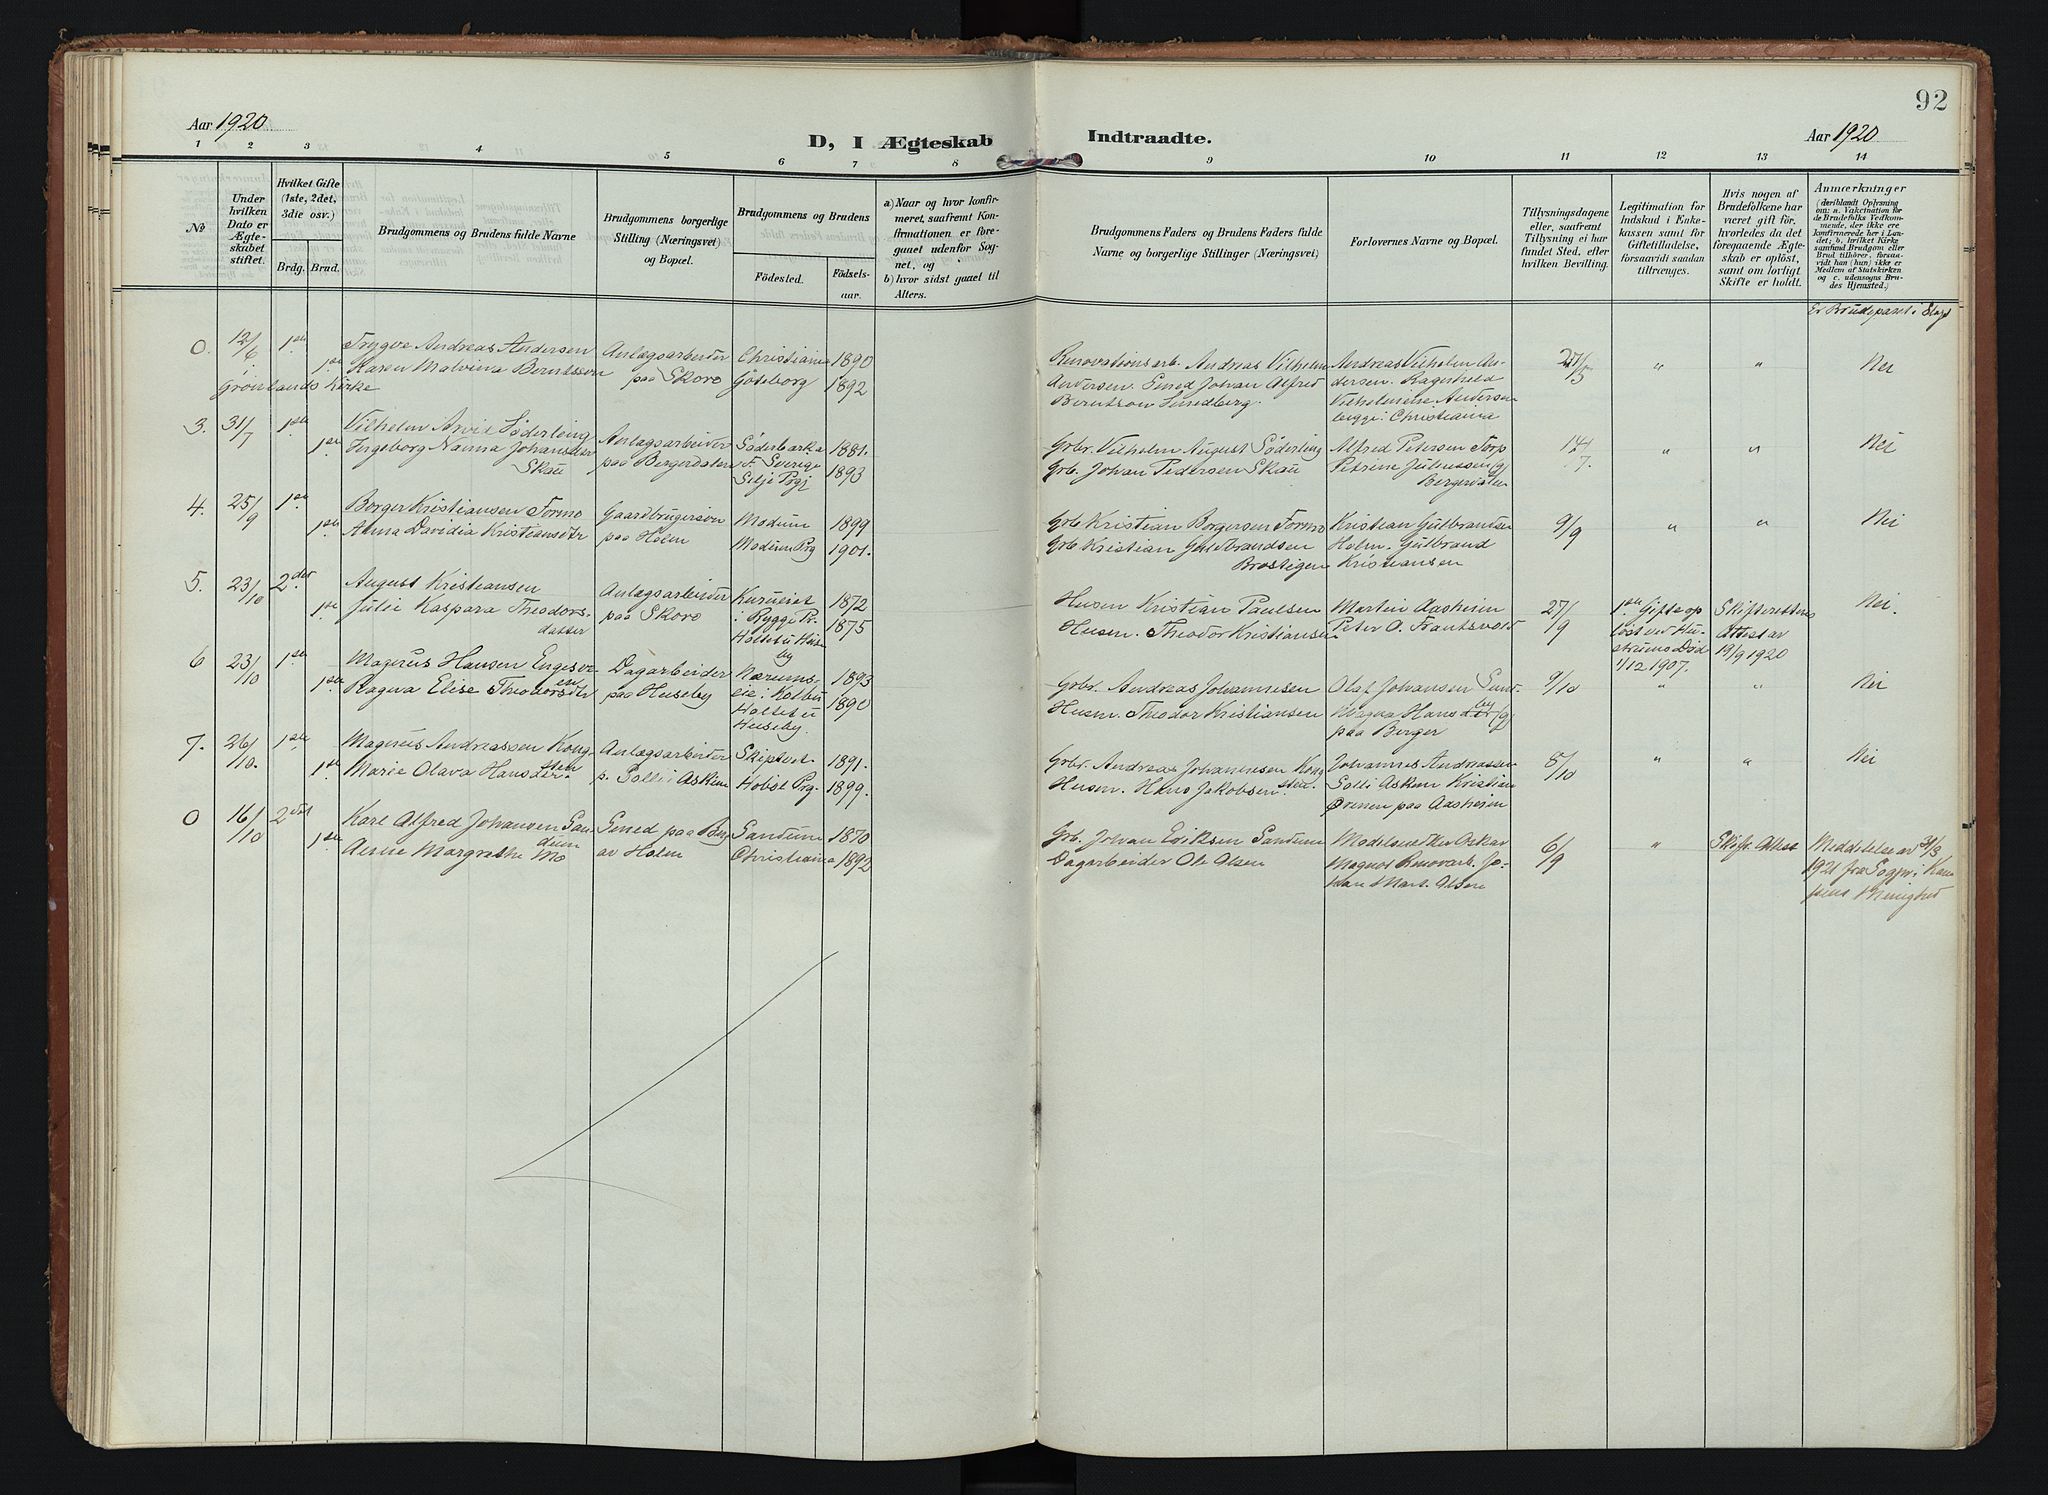 92
Aar 1920
D, I Ægteskab Indtraadte.
Aar 1920
1 2 3 4 5 6 7 8 9 10 11 12 13 14
No
Under hvilken Dato er Ægteskabet stiftet.
Hvilket Gifte (1ste, 2det, 3die osv.)
Brdg. Brud.
Brudgommens og Brudens fulde Navne
Brudgommens borgerlige Stilling (Næringsvei) og Bopæl.
Brudgommens og Brudens
Fødested.
Fødselsaar.
a) Naar og hvor konfirmeret, saafremt Konfirmationen er foregaaet udenfor Sognet, og
b) hvor sidst gaaet til Alters.
Brudgommens Faders og Brudens Faders fulde Navne og borgerlige Stillinger (Næringsvei)
Forlovernes Navne og Bopæl.
Tillysningsdagene eller, saafremt Tillysning ei har fundet Sted, efter hvilken Bevilling.
Legitimation for Indskud i Enkekassen samt for Giftetilladelse, forsaavidt saadan tiltrænges.
Hvis nogen af Brudefolkene har været gift før, hvorledes da det foregaaende Ægteskab er opløst, samt om lovligt Skifte er holdt.
Anmærkninger (deriblandt Oplysning om: a. Vaccination for de Brudefolks Vedkommende, der ikke ere konfirmerede her i Landet; b. hvilket Kirkesamfund Brudgom eller Brud tilhører, forsaavidt han (hun) ikke er Medlem af Statskirken og c. udensogns Brudes Hjemsted.)
Er Brudeparret i Slægt
0. 12/6 1ste Trygve Andreas Andersen Anlægsarbeider Christiania 1890
1ste Karen Malvina Berntsson paa Skoro Göteborg 1892
Grønlands Kirke
Renovationsarb. Andreas Vilhelm Andersen. Smed Johan Alfred Berntson Smedberg.
Andreas Vilhelm Andersen. Ragnhild Vilhelmine Andersen begge i Christiania
27/5 " " Nei
3. 31/7 1ste Vilhelm Arvid Söderling Anlægsarbeider Söderbarke 1881.
1ste Ingeborg Naima Johansdtr Skau paa Bergerdalen F. Sverige Silje Prgj 1893
Gbr. Vilhelm August Söderling
Grb. Johan Pedersen Skau
Alfred Petersen Torp
Petrine Juliussen Bergerdalen
14/7. " " Nei
4. 25/9 1ste Borger Kristiansen Formo Gaardbrugersøn Modum 1899
1ste Anna Davidia Kristiansdtr paa Holm Modum Prg 1901.
Grb Kristian Borgersen Formo
Grb Kristian Gulbrandsen Brostigen
Kristian Gulbrandsen Holm. Gulbrand Kristiansen
9/9 " " Nei
5. 23/10 2det August Kristiansen Anlægsarbeider 1872
1ste Julie Kaspara Theodorsdatter paa Skoro i Rygge Pr. Holtet u Huseby 1875
Husm Kristian Paulsen
Husm. Theodor Kristiansen
Martin Aasheim
Peter O. Frantsvold
27/9 1ste Gifte opløst ved Hustruens Død 1/12 1907.
Skifterettens Attest av 19/9 1920
Nei.
6 23/10 1ste Magnus Hansen Engesveen Dagarbeider 1893
1ste Ragna Elise Theodorsdtr paa Huseby Holtet u Huseby. 1890
Grbr. Andreas Johannesen
Husm. Theodor Kristiansen
Olaf Johansen Sundby
Magna Hansdtr paa Berger
9/10 " " Nei
7. 26/10. 1ste Magnus Andreassen Kongsten Anlægsarbeider Skiptvet 1891.
1ste Marie Olava Hansdtr p. Solli i Askim Hobøl Prg. 1899.
Grbr. Andreas Johannesen Kongsten.
Husm. Hans Jakobsen
Johannes Andreassen Solli Askim Kristian Ørenen paa Aasheim
8/10 " " Nei
0 16/10 2det Karl Alfred Johansen Sandum Smed paa Berg Sandum 1870
1ste Anne Margrethe Mo av Holm Christiania 1892
Grb. Johan Eriksen Sandum
Dagarbeider Ole Olsen
Modelsnekker Oskar Magnor Renovarb. Johan Mart. Olsen
6/9 " Skifr. Attest
Meddelelse av 31/3 1921 fra Sogpr. i Kampens Menighed